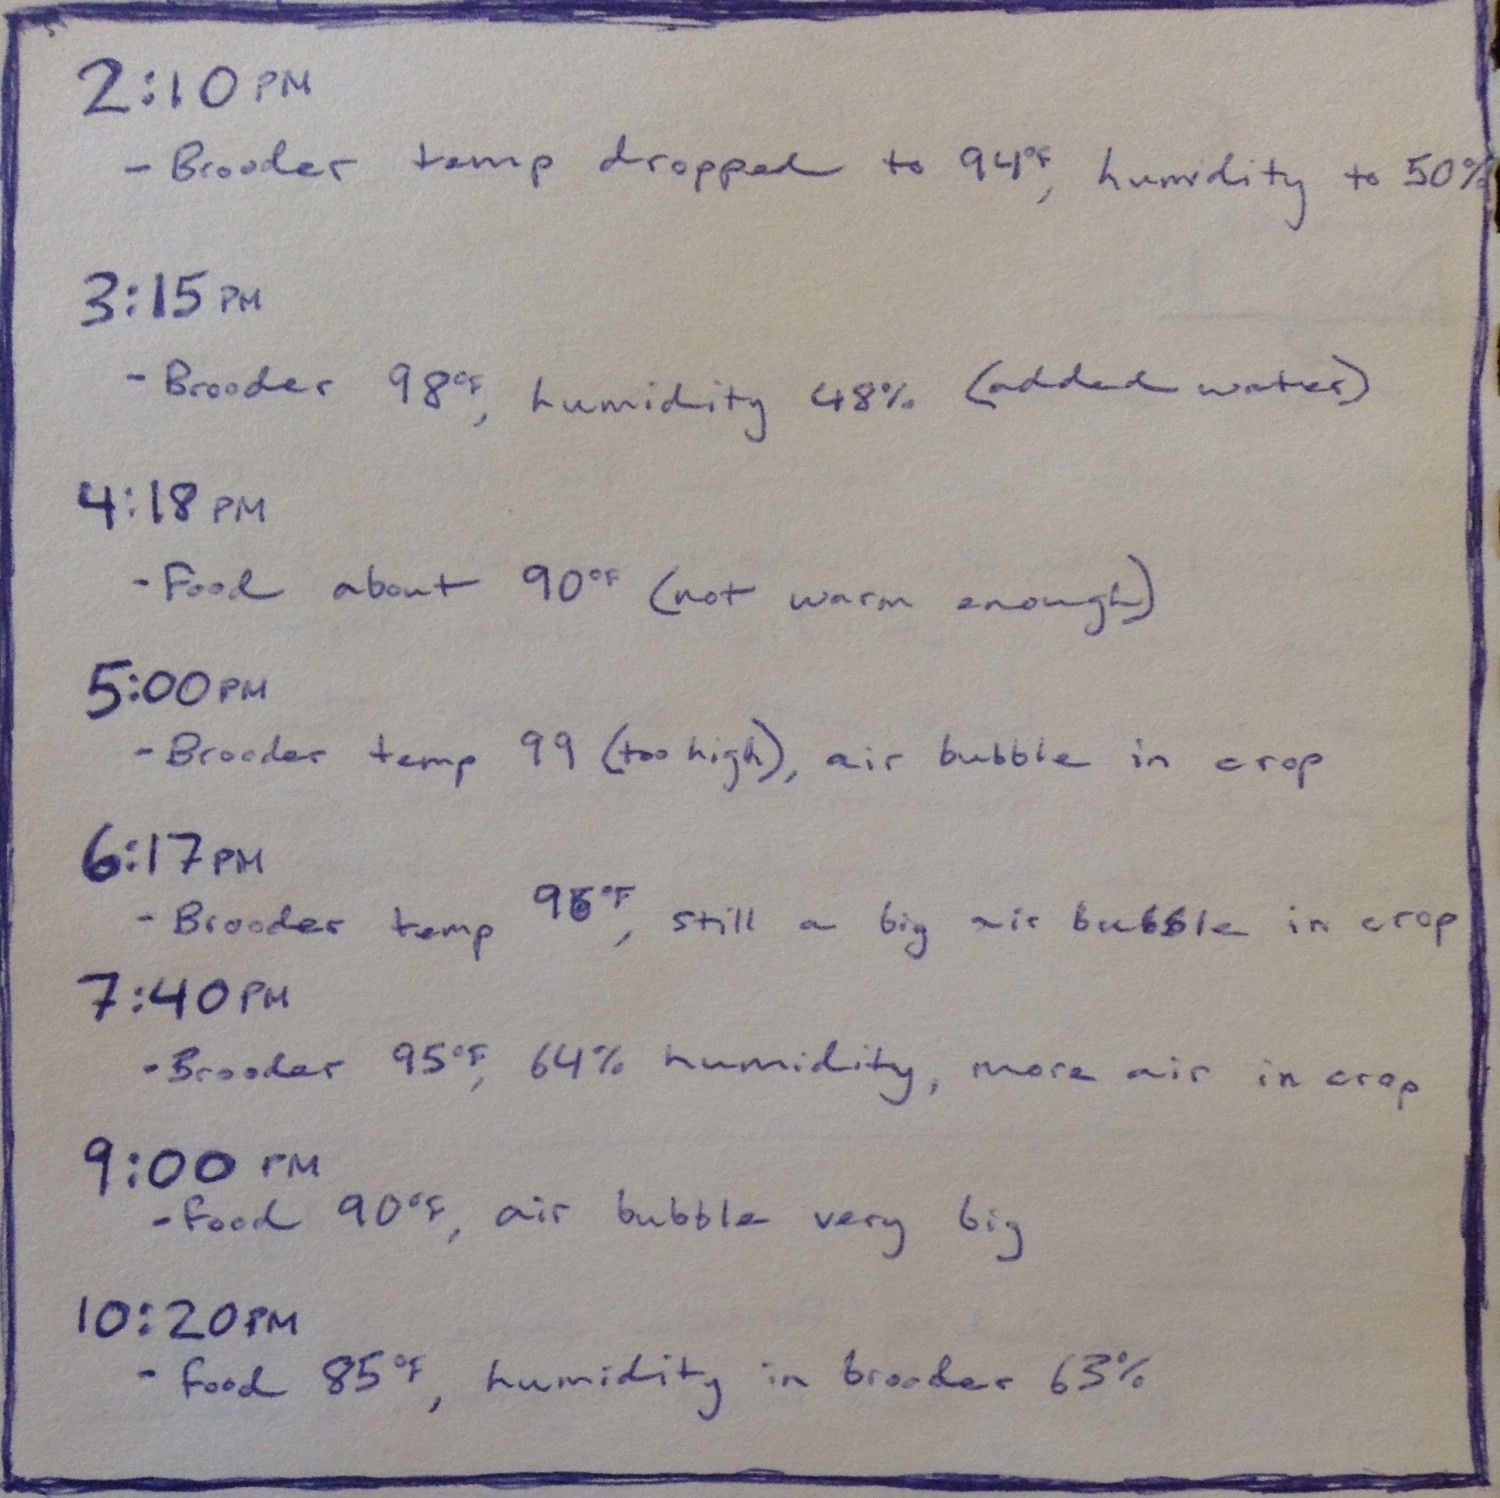 2:10 PM
- Brooder temp dropped to 94°F, humidity to 50%
3:15 PM
- Brooder 98°F, humidity 48% (added water)
4:18 PM
- Food about 90°F (not warm enough)
5:00 PM
- Brooder temp 99 (too high), air bubble in crop
6:17 PM
- Brooder temp °F, still a big air bubble in crop
7:40 PM
- Brooder 95°F, 64% humidity, more air in crop
9:00 PM
- Food 90°F, air bubble very big
10:20 PM
- Food 85°F, humidity in brooder 63%